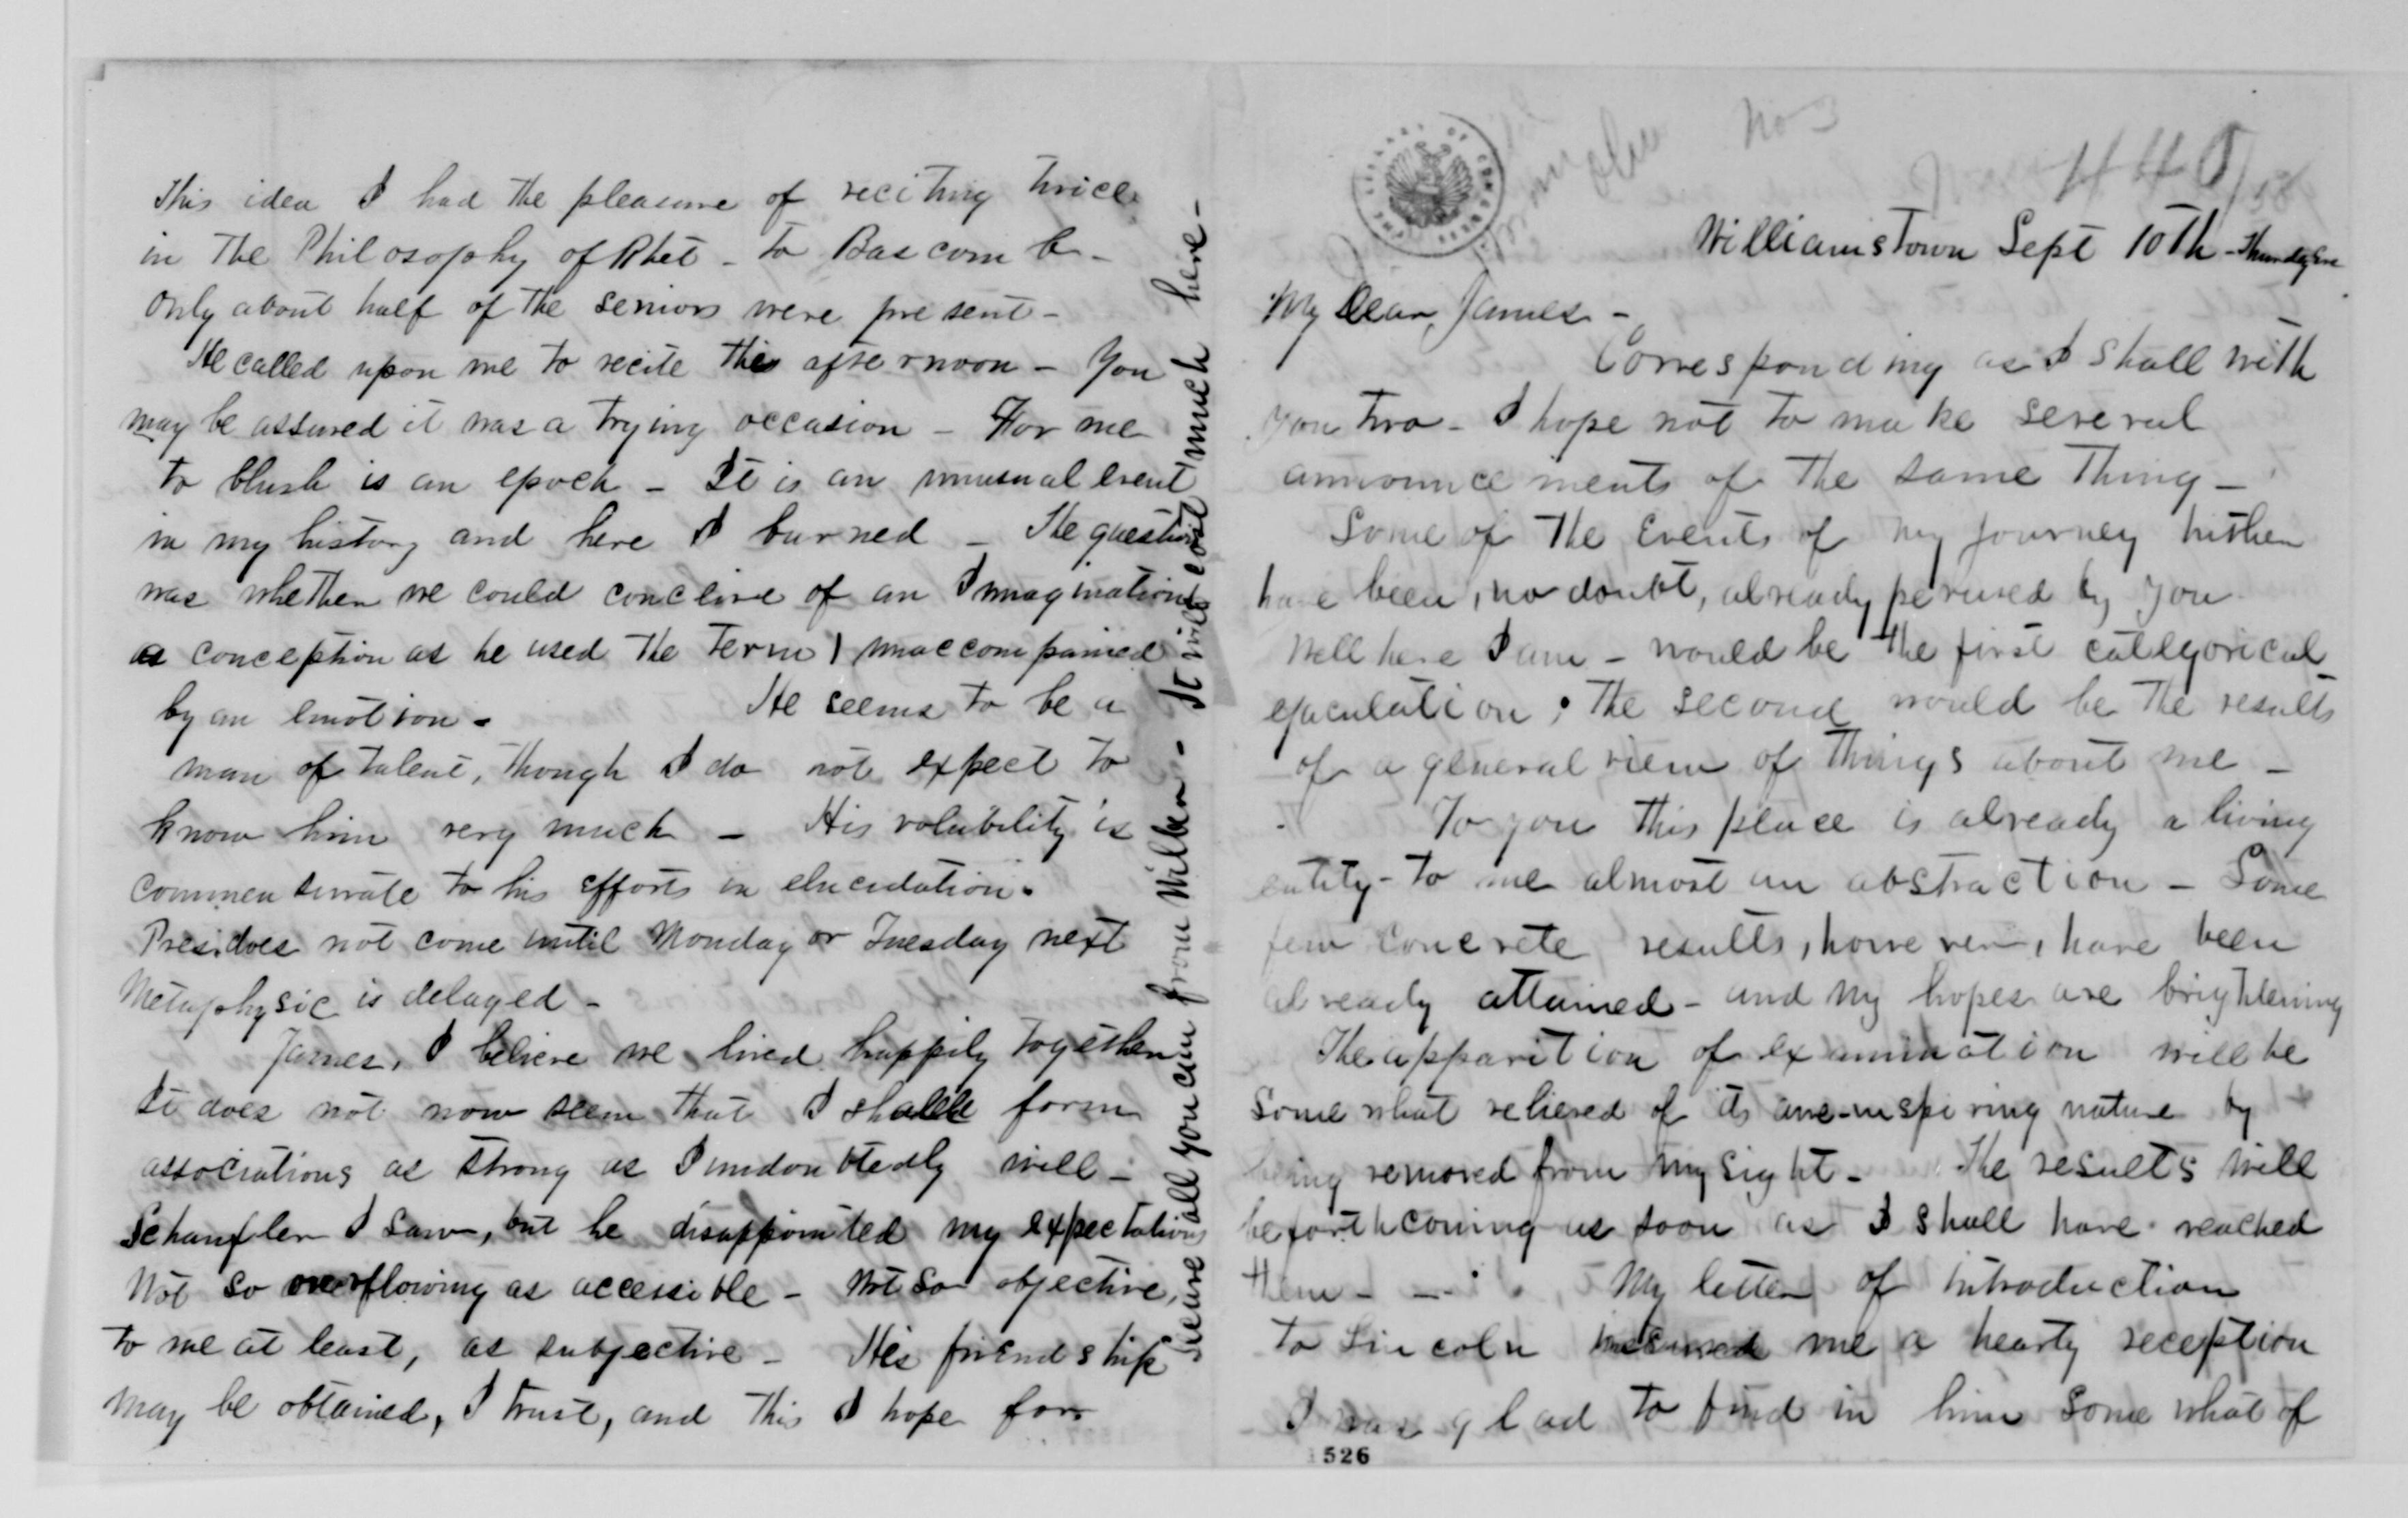 Williamstown Sept 10th - Thursday Eve
My Dear James -
Corresponding as I shall with
you two - I hope not to make several
announcements of the same thing -
Some of the events of my journey hither
have been, no doubt, already perused by you
Well here I am - would be the first categorical
ejaculation; The second would be the results
of a general view of things about me -
To you this place is already a living
entity - to me almost an abstraction - Some
few concrete results, however, have been
already attained - and my hopes are brightening
The apparition of examination will be
somewhat relieved of its awe-inspiring nature by
being removed from my sight - The results will
be forthcoming as soon as I shall have reached
them - My letter of introduction
to Lincoln me a hearty reception
I was glad to find in him somewhat of
526
This idea I had the pleasure of reciting twice
in the Philosophy of Rhet - to Bascom
only about half of the seniors were present -
He called upon me to recite this afternoon - You
may be assured it was a trying occasion - For me
to blush is an epoch - It is an unusual event
in my history and here I burned - The question
was whether we could conceive of an Imagination
as conception as he used the term) unaccompanied
by an emotion - He seems to be a
man of talent, though I do not expect to
know him very much - His volubility is
commensurate to his efforts in elucidation.
Pres. does not come until Monday or Tuesday next
Metaphysic is delayed -
James, I believe we lived happily together
It does not now seem that I shall form
associations as strong as I undoubtedly will -
Schauffler I saw, but he disappointed my expectations
Not so overflowing as accessible - Not so objective,
to me at least, as subjective - His friendship
may be obtained, I trust, and this I hope for
all you can from Wilber - It will cost much here -